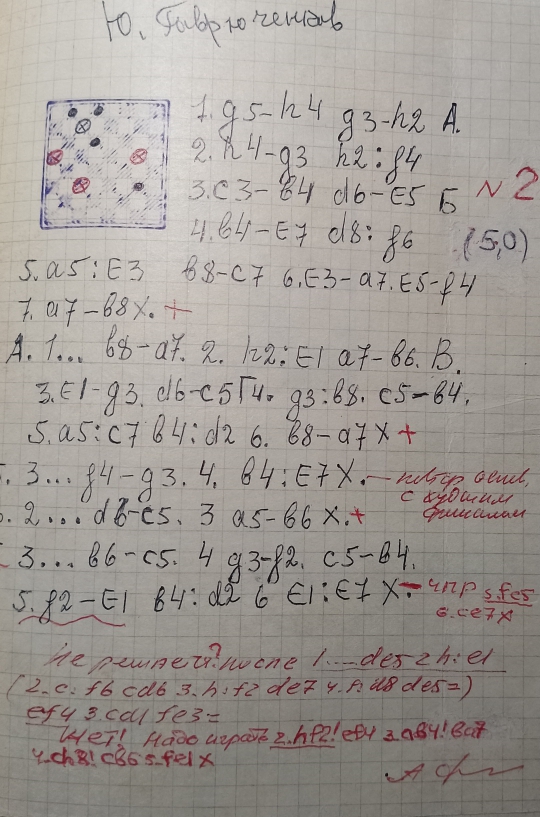 Ю. Гаврюченков
1. g5-h4 g3-h2 A.
2. h4-g3 h2:f4
3. c3-в4 d6-E5 Б
N 2
4. в4-E7 d8:f6
(5,0)
5. a5:E3 в8-c7 6. E3-a7. E5-f4
7. a7-в8X. +
A. 1... в8-a7. 2. h2:E1 a7-в6. B.
3. E1-g3. d6-c5 Г 4. g3:в8. c5-в4.
5. a5:c7 в4:d2 6. в8-a7X +
3... f4-g3. 4. в4:E7X. —
с худшим
финалом
2... d6-c5. 3 a5-в6 X. +
3... в6-c5. 4 g3-f2. c5-в4.
5. f2-E1 в4:d2 6 E1:E7 X. -
чпр 5. fc5
6. ce7X
Не решается? после 1... de5 2 h:e1
(2. c:f6 cd6 3. h:f2 de7 4. h:d8 de5=)
ef4 3. cd1 fe3=
Нет! Надо играть 2. hf2! ef4 3. aв4! вa7
4. ch8! cв6 5. fe1X